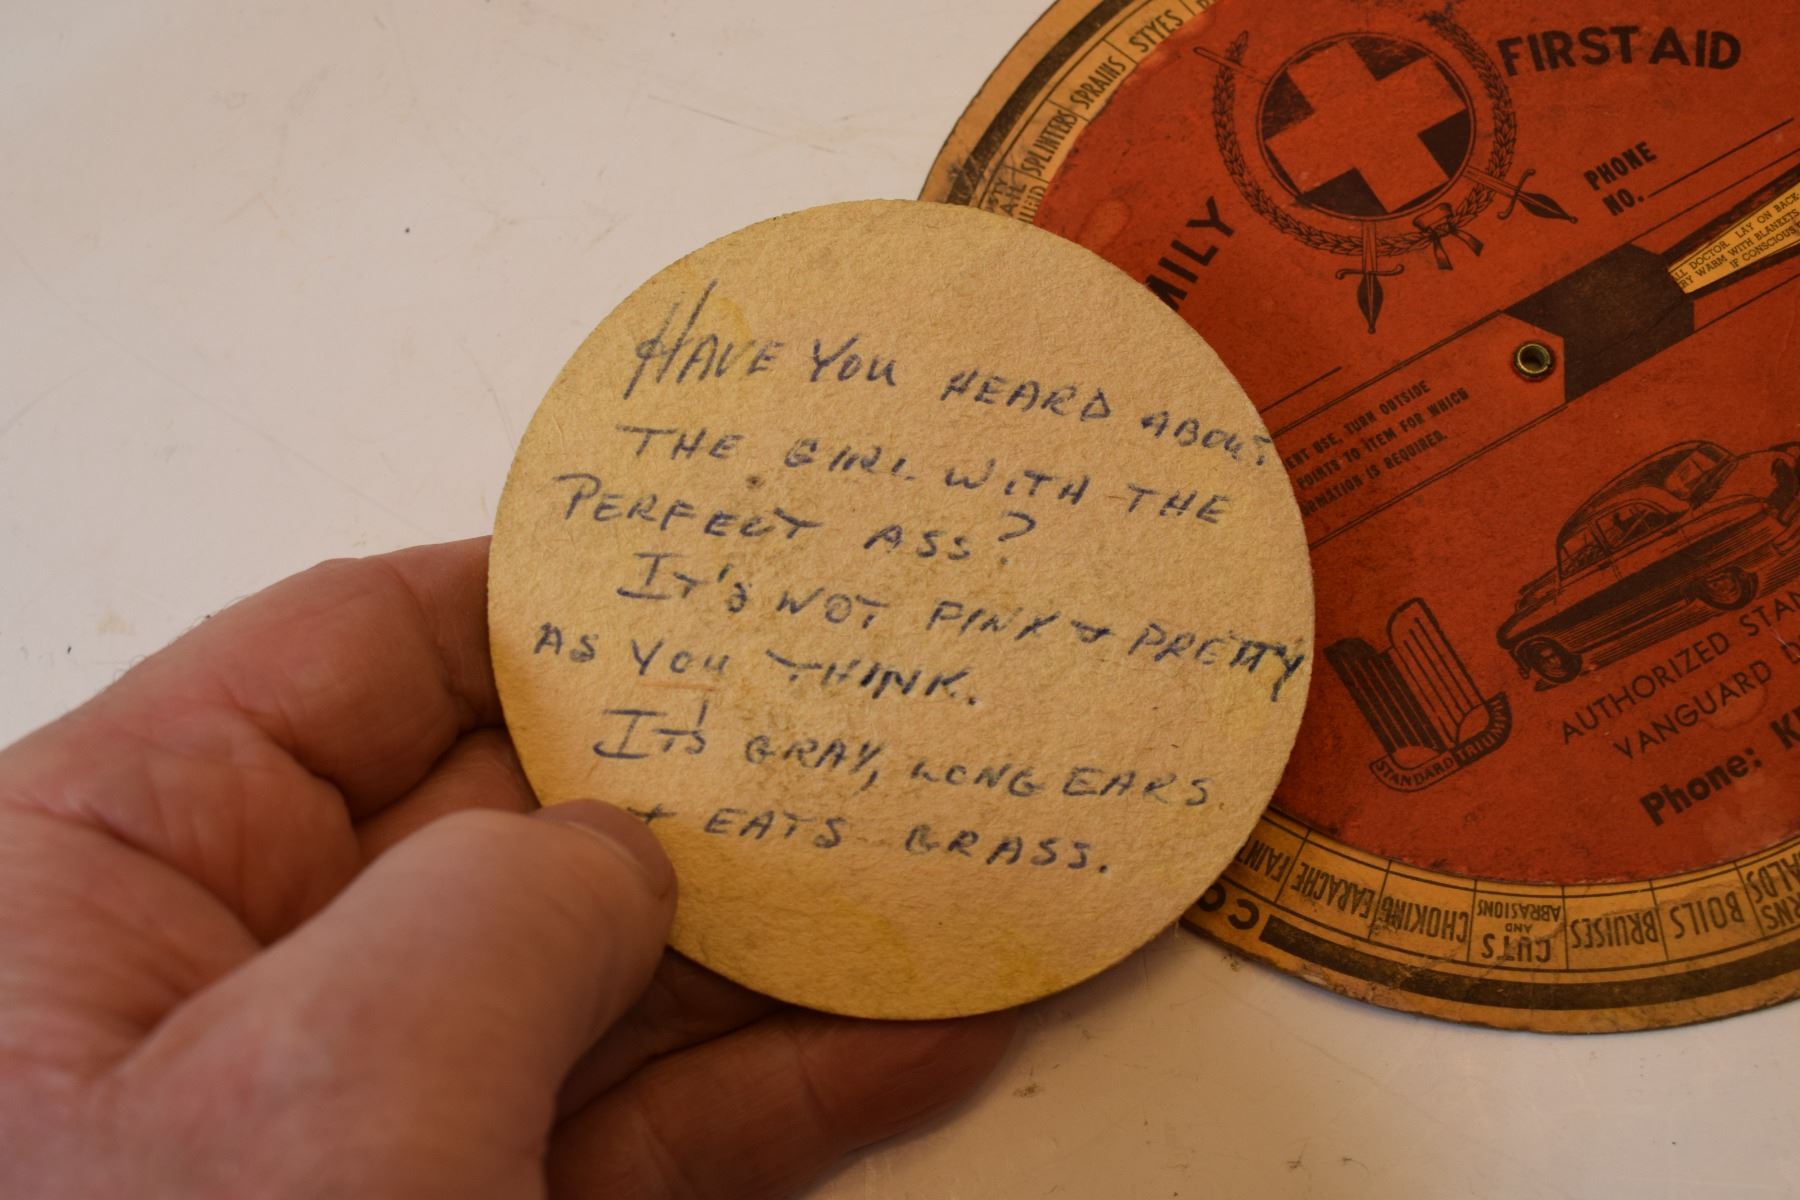 HAVE YOU HEARD ABOUT
THE GIRL WITH THE
PERFECT ASS?
IT'S NOT PINK + PRETTY
AS YOU THINK.
IT'S GRAY, LONG EARS
+ EATS GRASS.
FIRST AID
MILY
PHONE
NO.
STYES
SPRAINS
SPLINTERS
ALL DOCTOR. LAY ON BACK
RY WARM WITH BLANKETS
IF CONSCIOUS
ENT USE, TURN OUTSIDE
POINTS TO ITEM FOR WHICH
ORMATION IS REQUIRED.
STANDARD TRIUM
AUTHORIZED STAN
VANGUARD D
Phone: K
FAINT
EARACHE
CHOKING
CUTS AND ABRASIONS
BRUISES
BOILS
RNS
ALDS
CO